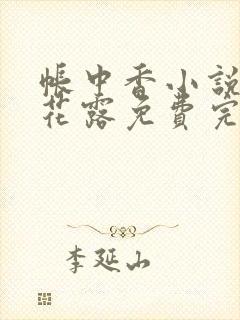 帳中香小說
花露免費完
李延山